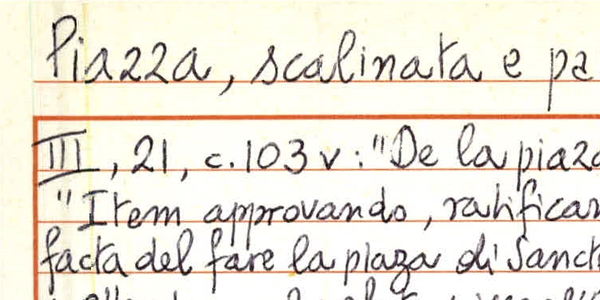 Piazza, scalinata e pa
III, 21, c. 103 v: "De la piaza
"Item approvando, ratifican
facta del fare la plaza di Sanct